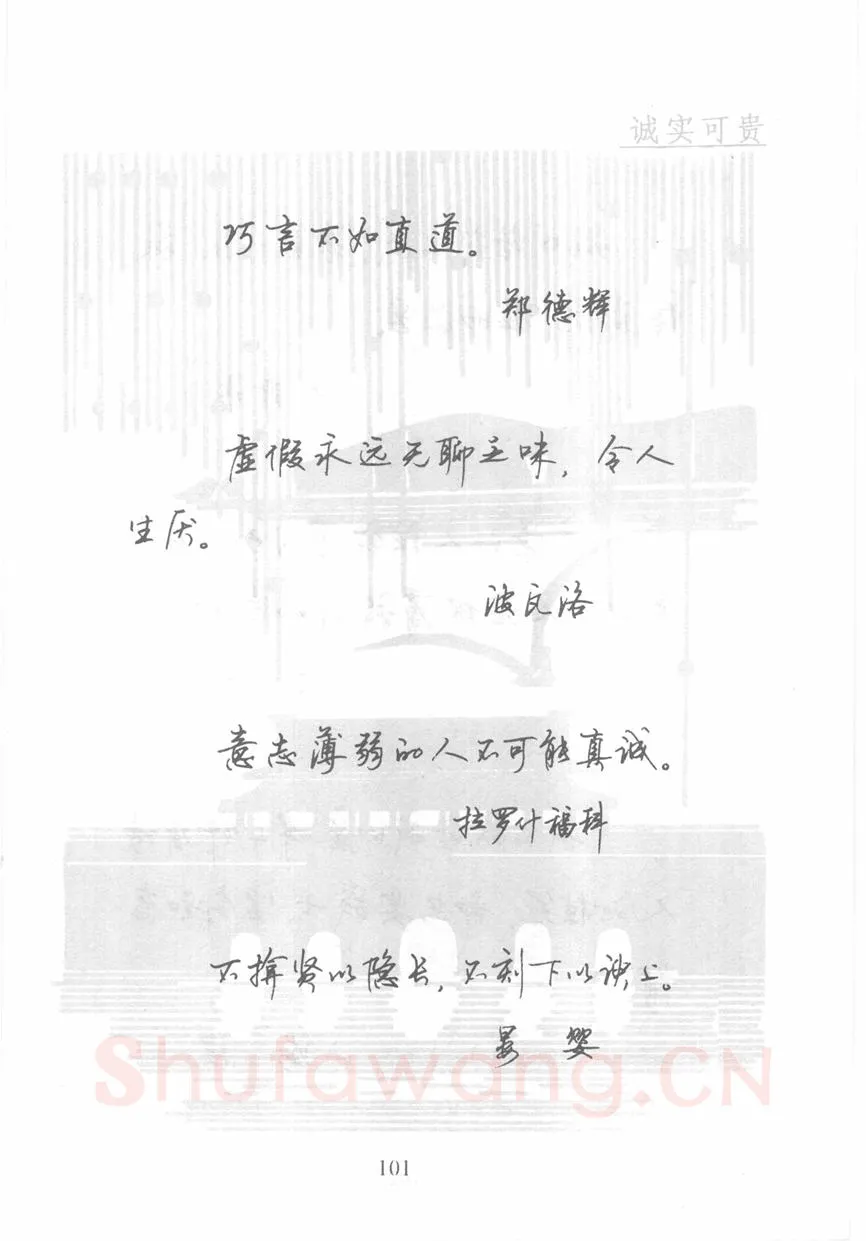 诚实可贵
巧言不如直道。
郑德辉
虚假永远无聊乏味，令人
生厌。
波瓦洛
意志薄弱的人不可能真诚。
拉罗什福科
不揜贤以隐长，不刻下以谀上。
晏 婴
Shufawang.CN
101